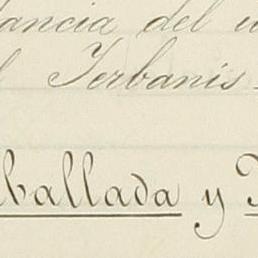 ancia del
l Terbanis
ballada y